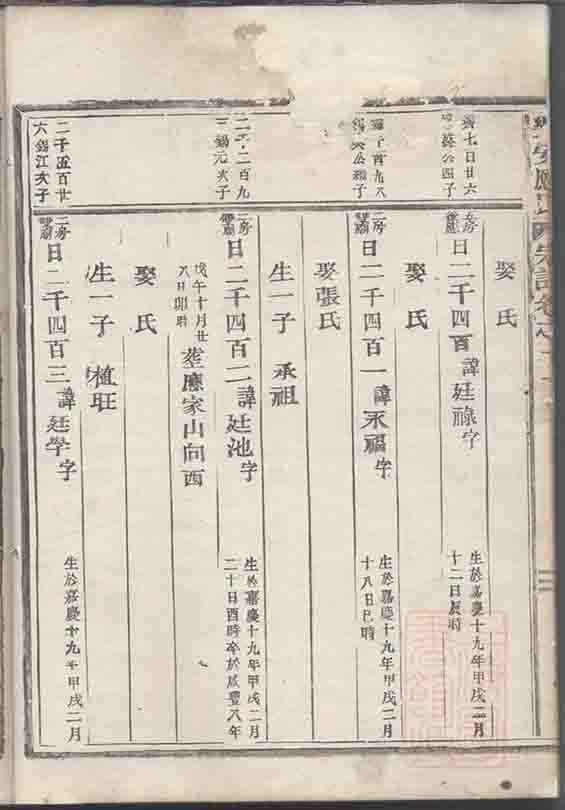 娶氏
日二千四百諱廷祿字
生於嘉慶十九年甲戌二月
十二日辰時
娶氏
二房
日二千四百一諱永福字
生於嘉慶十九年甲戌二月
十八日巳時
娶張氏
生一子 承祖
二千二百九
三錫元次子
二房
日二千四百二諱廷池字
生於嘉慶十九年甲戌二月
二十日酉時卒於咸豐八年
戊午十月廿
八日卯時
葬應家山向西
娶氏
生一子 植旺
二千五百廿
六錫江次子
二房
日二千四百三諱廷學字
生於嘉慶十九年甲戌二月